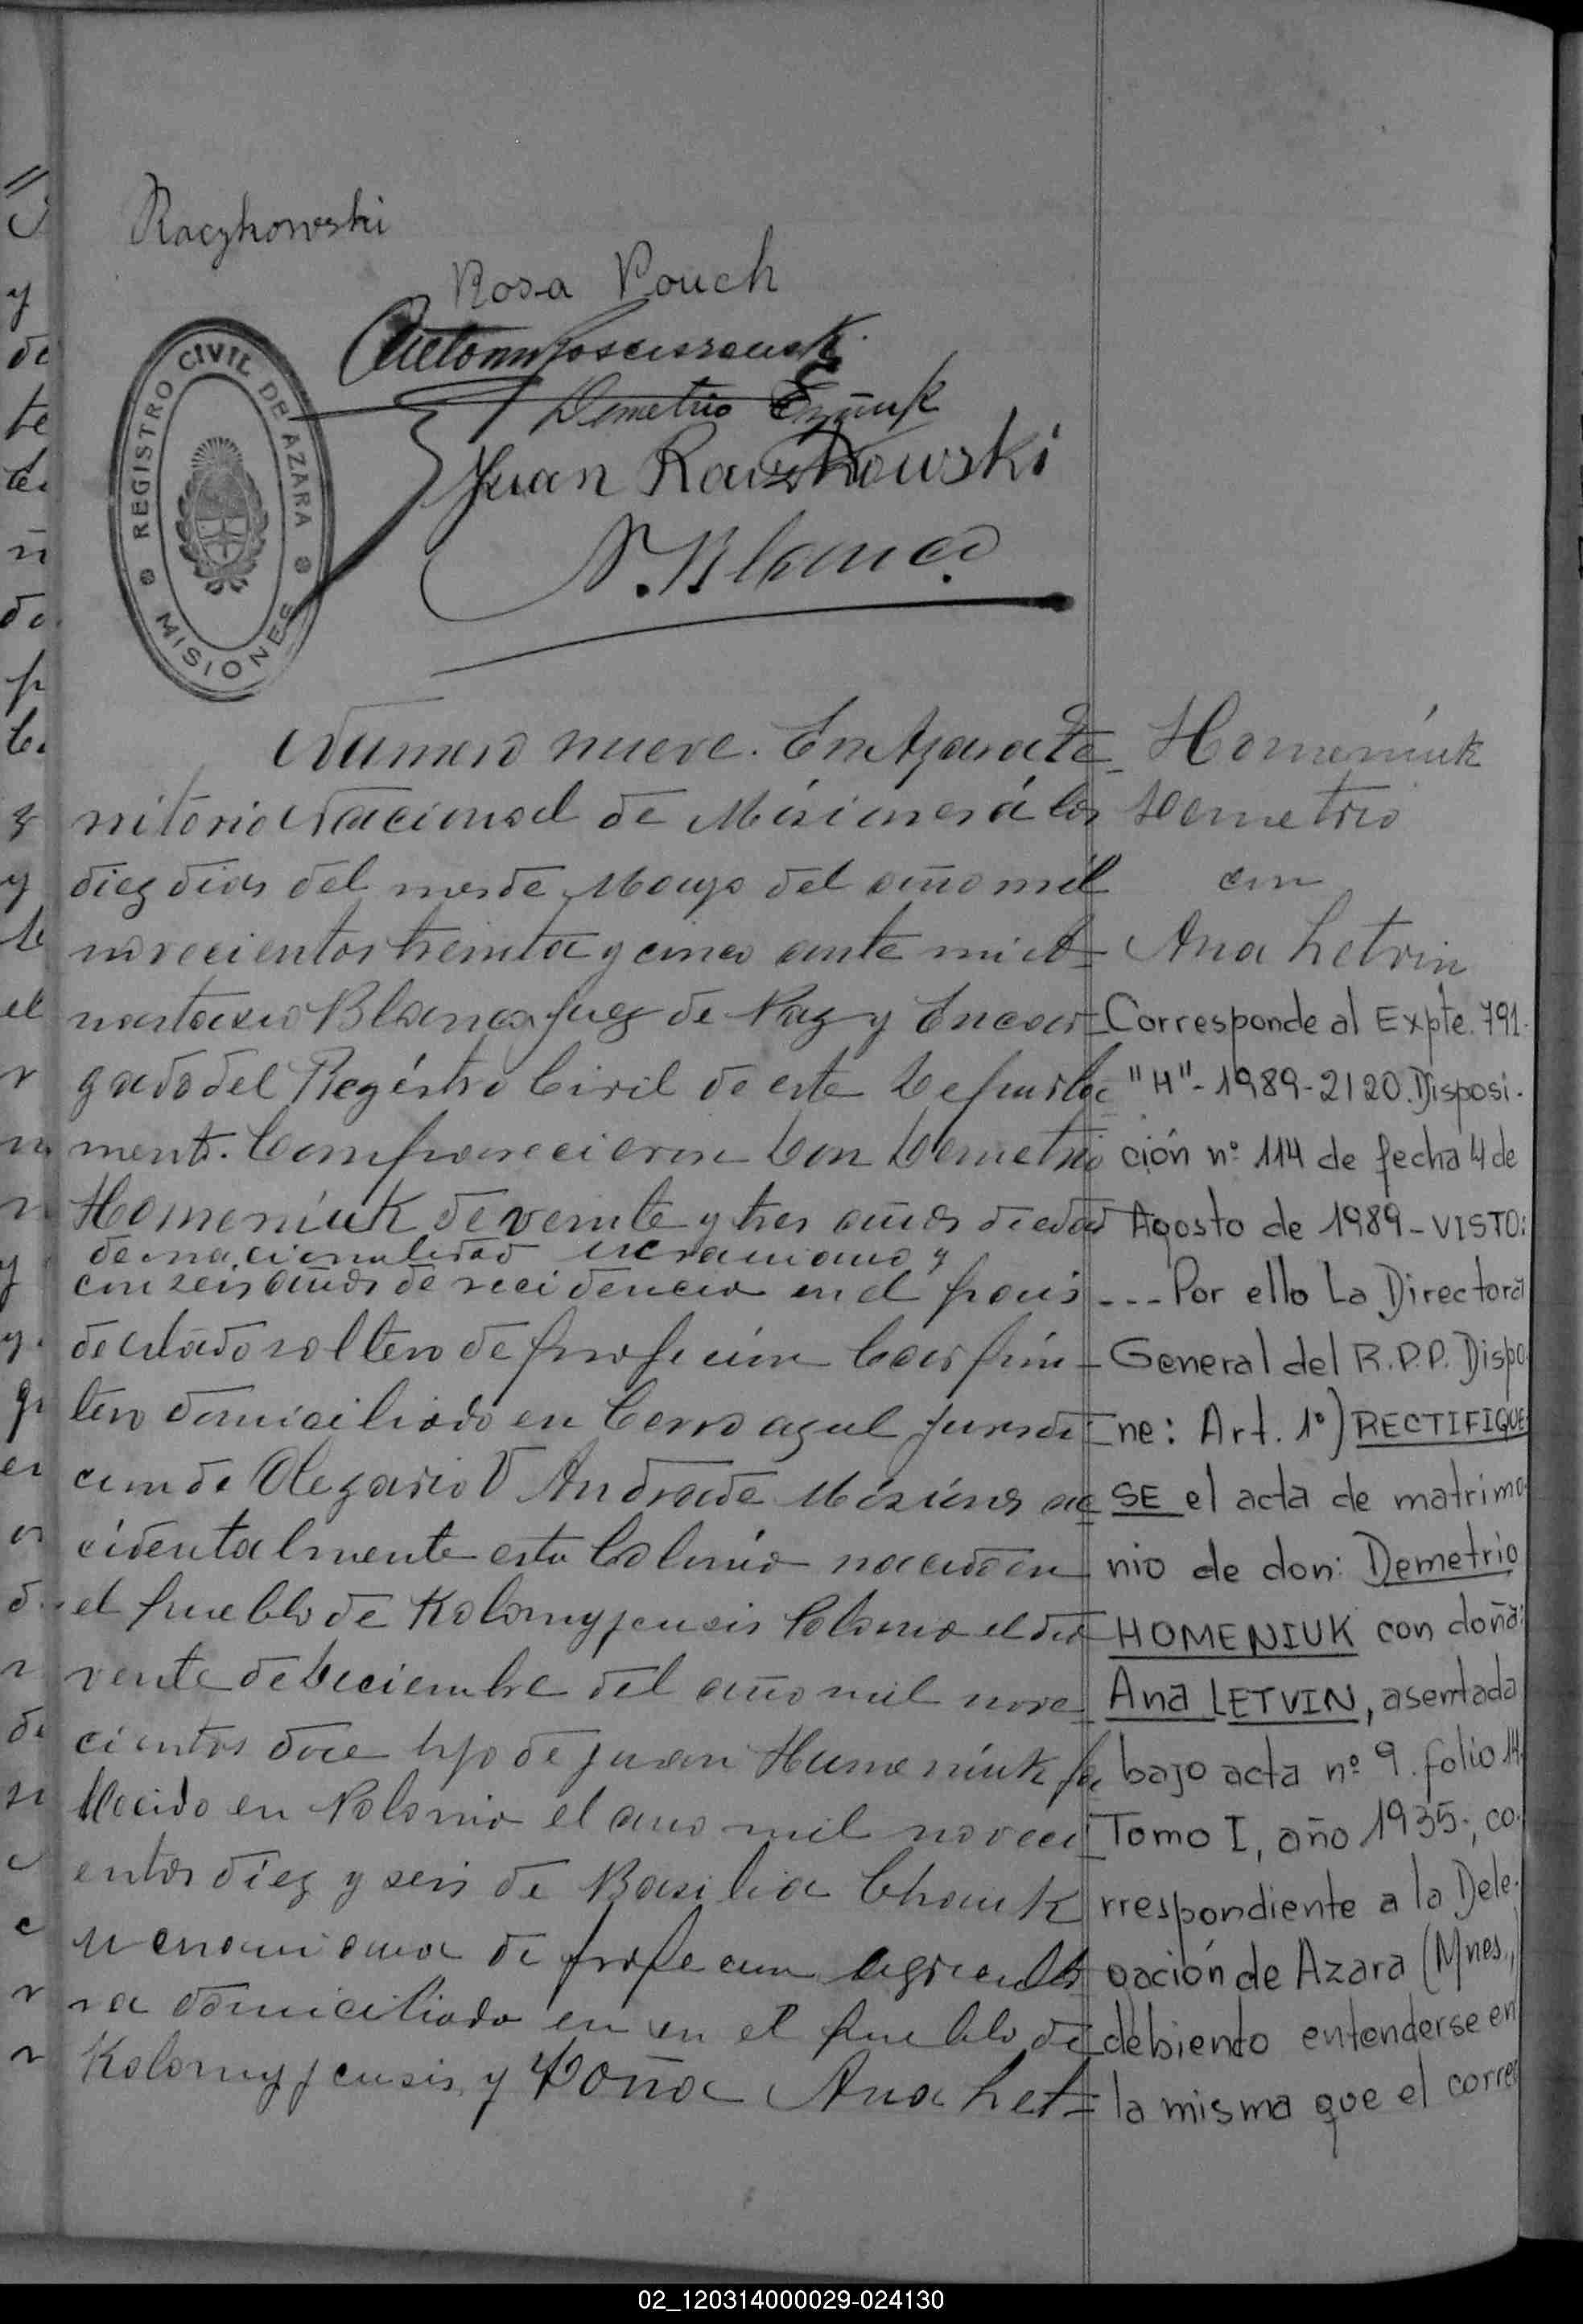 Raczkowski
Rosa Pouch
Demetrio
Juan Raczkowski
A. Blanco
REGISTRO CIVIL DE AZARA
MISIONES
Numero nueve. En Azara te
rritorio Nacional de Misiones á los
diez dias del mes de Mayo del año mil
novecientos treinta y cinco ante mi A
nastasio Blanco Juez de Paz y Encar
gado del Registro Civil de este Departa
mento. Comparecieron Don Demetrio
Homeniuk de veinte y tres años de edad
de nacionalidad ucraniano y
con seis años de recidencia en el pais
de estado soltero de profecion Carpin
tero domiciliado en Cerro azul jurisdi
cion de Olegario V Andrade Misiones ac
cidentalmente esta Colonia nacido en
el pueblo de Polonia el dia
veinte de Deciembre del año mil nove
cientos doce hijo de Juan Humeniuk fa
llecido en Polonia el ano mil noveci
entos diez y seis de Basilia
ucraniana de profecion agriculto
ra domiciliada en en el pueblo de
y Doña Ana Let
Homeniuk
Demetrio
con
Ana Letvin
Corresponde al Expte. 791.
"H"- 1989-2120. Disposi.
ción nº 114 de fecha 4 de
Agosto de 1989 - VISTO:
--- Por ello La Directora
General del R.P.P. Dispo.
ne: Art. 1º) RECTIFIQUE
SE el acta de matrimo
nio de don: Demetrio
HOMENIUK con doña:
Ana LETVIN, asentada
bajo acta nº 9. folio 14.
Tomo I, año 1935; co.
rrespondiente a la Dele.
gación de Azara (Mnes.,
debiento entenderse en
la misma que el corre
02_120314000029-024130